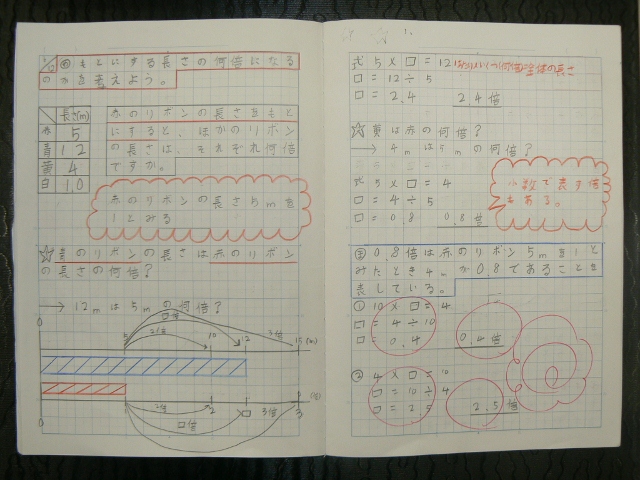 め もとにする長さの何倍になる
のかを考えよう。
長さ(m)
赤 5
青 12
黄 4
白 10
赤のリボンの長さをもと
にすると、ほかのリボン
の長さは、それぞれ何倍
ですか。
赤のリボンの長さ5mを
1とみる
☆青のリボンの長さは赤のリボン
の長さの何倍?
→ 12mは5mの何倍?
0 5 10 12 15 (m)
□倍
2倍
3倍
0 1 2 □ 3 (倍)
2倍
□倍
3倍
式 5×□=12
全体の長さ
□=12÷5
□=2.4 2.4倍
☆黄は赤の何倍?
→ 4mは5mの何倍?
式 5×□=4
□=4÷5
□=0.8 0.8倍
小数で表す倍
もある。
ま 0.8倍は赤のリボン5mを1と
みたとき4mが0.8であることを
表している。
① 10×□=4
□=4÷10
□=0.4 0.4倍
② 4×□=10
□=10÷4
□=2.5 2.5倍